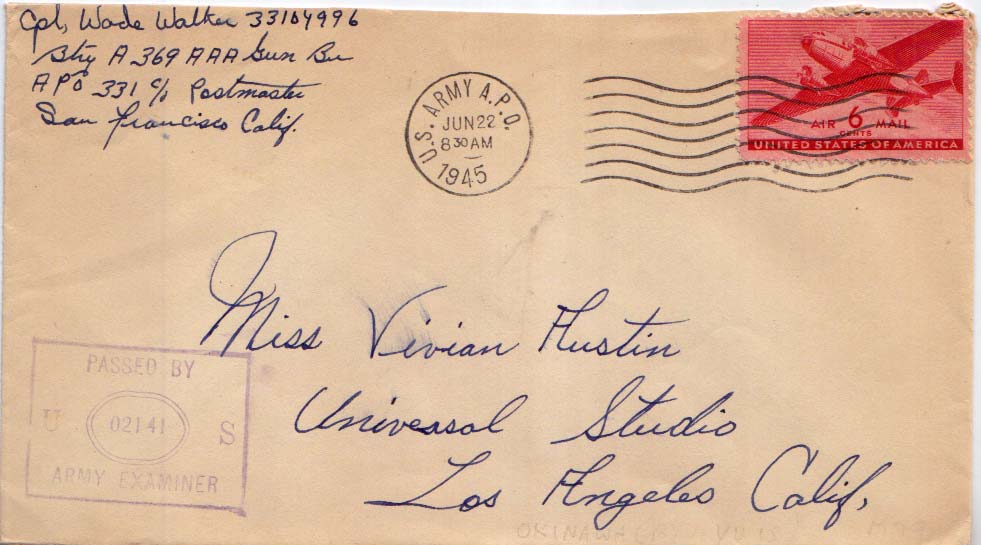 Cpl, Wade Walker 33104996
Btry A 369 AAA Gun Bn
APO 331 c/o Postmaster
San Francisco Calif.
U.S. ARMY A.P.O.
JUN 22
8 30 AM
1945
AIR 6 MAIL
CENTS
UNITED STATES OF AMERICA
Miss Vivian Austin
Universal Studio
Los Angeles Calif,
PASSED BY
U 02141 S
ARMY EXAMINER
OKINAWA